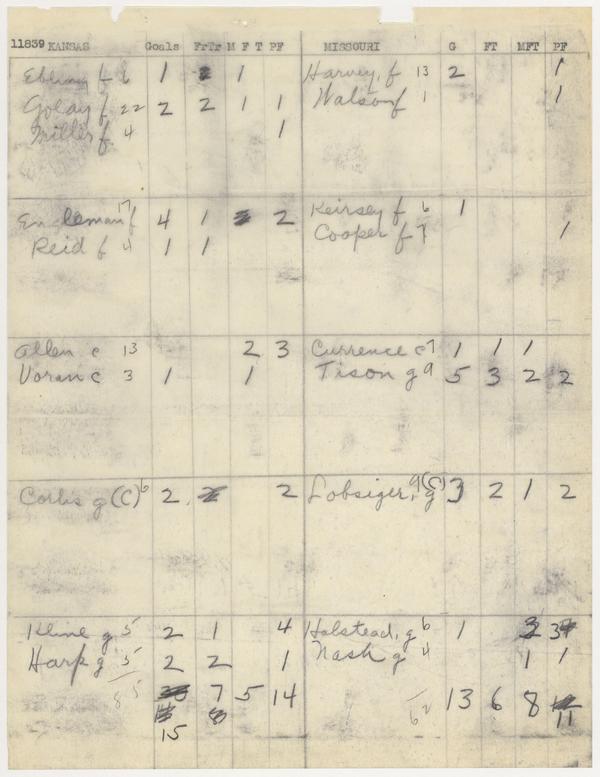 11839 KANSAS Goals FrTr M F T PF MISSOURI G FT MFT PF
Ebling f 6 1 1 Harvey, f 13 2 1
Golay f 22 2 2 1 1 Watson f 1 1
Miller f 4 1
Engleman f 17 4 1 2 Keirsey f 6 1
Reid f 4 1 1 Cooper f 7 1
Allen c 13 2 3 Currence c 7 1 1 1
Voran c 3 1 1 Tison g 9 5 3 2 2
Corlis g (C) 6 2 2 Lobsiger, g 9 (C) 3 2 1 2
Kline g 5 2 1 4 Halstead, g 6 1 3 3
Harp g 5 2 2 1 Nash g 4 1 1
85 7 5 14 62 13 6 8
15 11